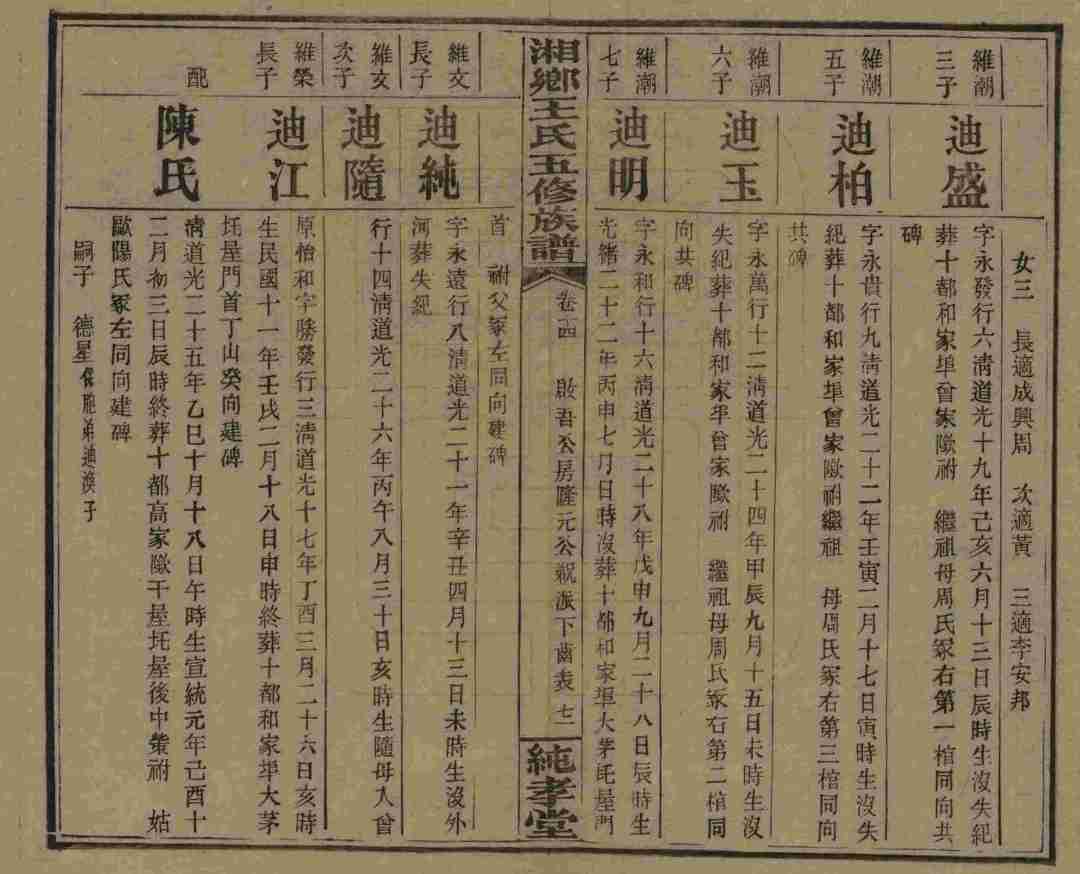 女三 長適成興周 次適黃 三適李安邦
維潮三子
迪盛
字永發行六淸道光十九年己亥六月十三日辰時生沒失紀
葬十都和家埠曾家歐祔 繼祖母周氏冢右第一棺同向共
碑
維潮五子
迪柏
字永貴行九淸道光二十二年壬寅二月十七日寅時生沒失
紀葬十都和家埠曾家歐祔繼祖 母周氏冢右第三棺同向
共碑
維潮六子
迪玉
字永萬行十二淸道光二十四年甲辰九月十五日未時生沒
失紀葬十都和家埠曾家歐祔 繼祖母周氏冢右第二棺同
向共碑
維潮七子
迪明
字永和行十六淸道光二十八年戊申九月二十八日辰時生
光緒二十二年丙申七月日時沒葬十都和家埠大茅坵屋門
湘鄉王氏五修族譜
卷十四 啟吾公房隆元公視派下齒表 七一
純孝堂
首 祔父冢左同向建碑
維文長子
迪純
字永遠行八淸道光二十一年辛丑四月十三日未時生沒外
河葬失紀
維文次子
迪隨
行十四淸道光二十六年丙午八月三十日亥時生隨母入曾
維榮長子
迪江
原怡和字勝發行三淸道光十七年丁酉三月二十六日亥時
生民國十一年壬戌二月十八日申時終葬十都和家埠大茅
坵屋門首丁山癸向建碑
配
陳氏
淸道光二十五年乙巳十月十八日午時生宣統元年己酉十
二月初三日辰時終葬十都高家歐干屋坵屋後中 祔 姑
歐陽氏冢左同向建碑
嗣子 德星 胞弟迪渙子